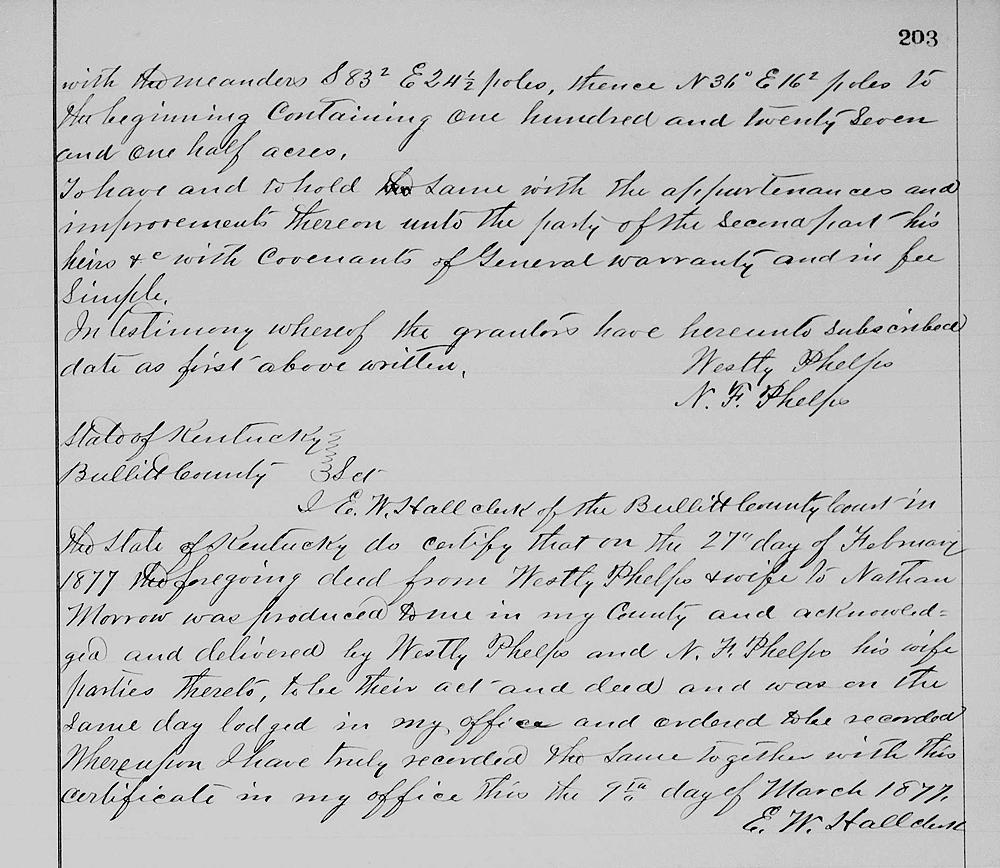 203
with the meanders S 83° E 24½ poles, thence N 36° E 16² poles to
the beginning Containing one hundred and twenty Seven
and one half acres.
To have and to hold the Same with the appurtenances and
improvements thereon unto the party of the Second part his
heirs &c with Covenants of General warranty and in fee
Simple.
In testimony whereof the grantors have hereunto subscribed
date as first above written.
Westly Phelps
N. F. Phelps
State of Kentucky
Bullitt County } Sct
I E. W. Hall clerk of the Bullitt County Court in
the State of Kentucky do certify that on the 27" day of February
1877 the foregoing deed from Westly Phelps & wife to Nathan
Morrow was produced to me in my County and acknowled=
ged and delivered by Westly Phelps and N. F. Phelps his wife
parties thereto, to be their act and deed and was on the
same day lodged in my office and ordered to be recorded
Whereupon I have truly recorded the same together with this
certificate in my office this the 9th day of March 1877.
E. W. Hall clerk